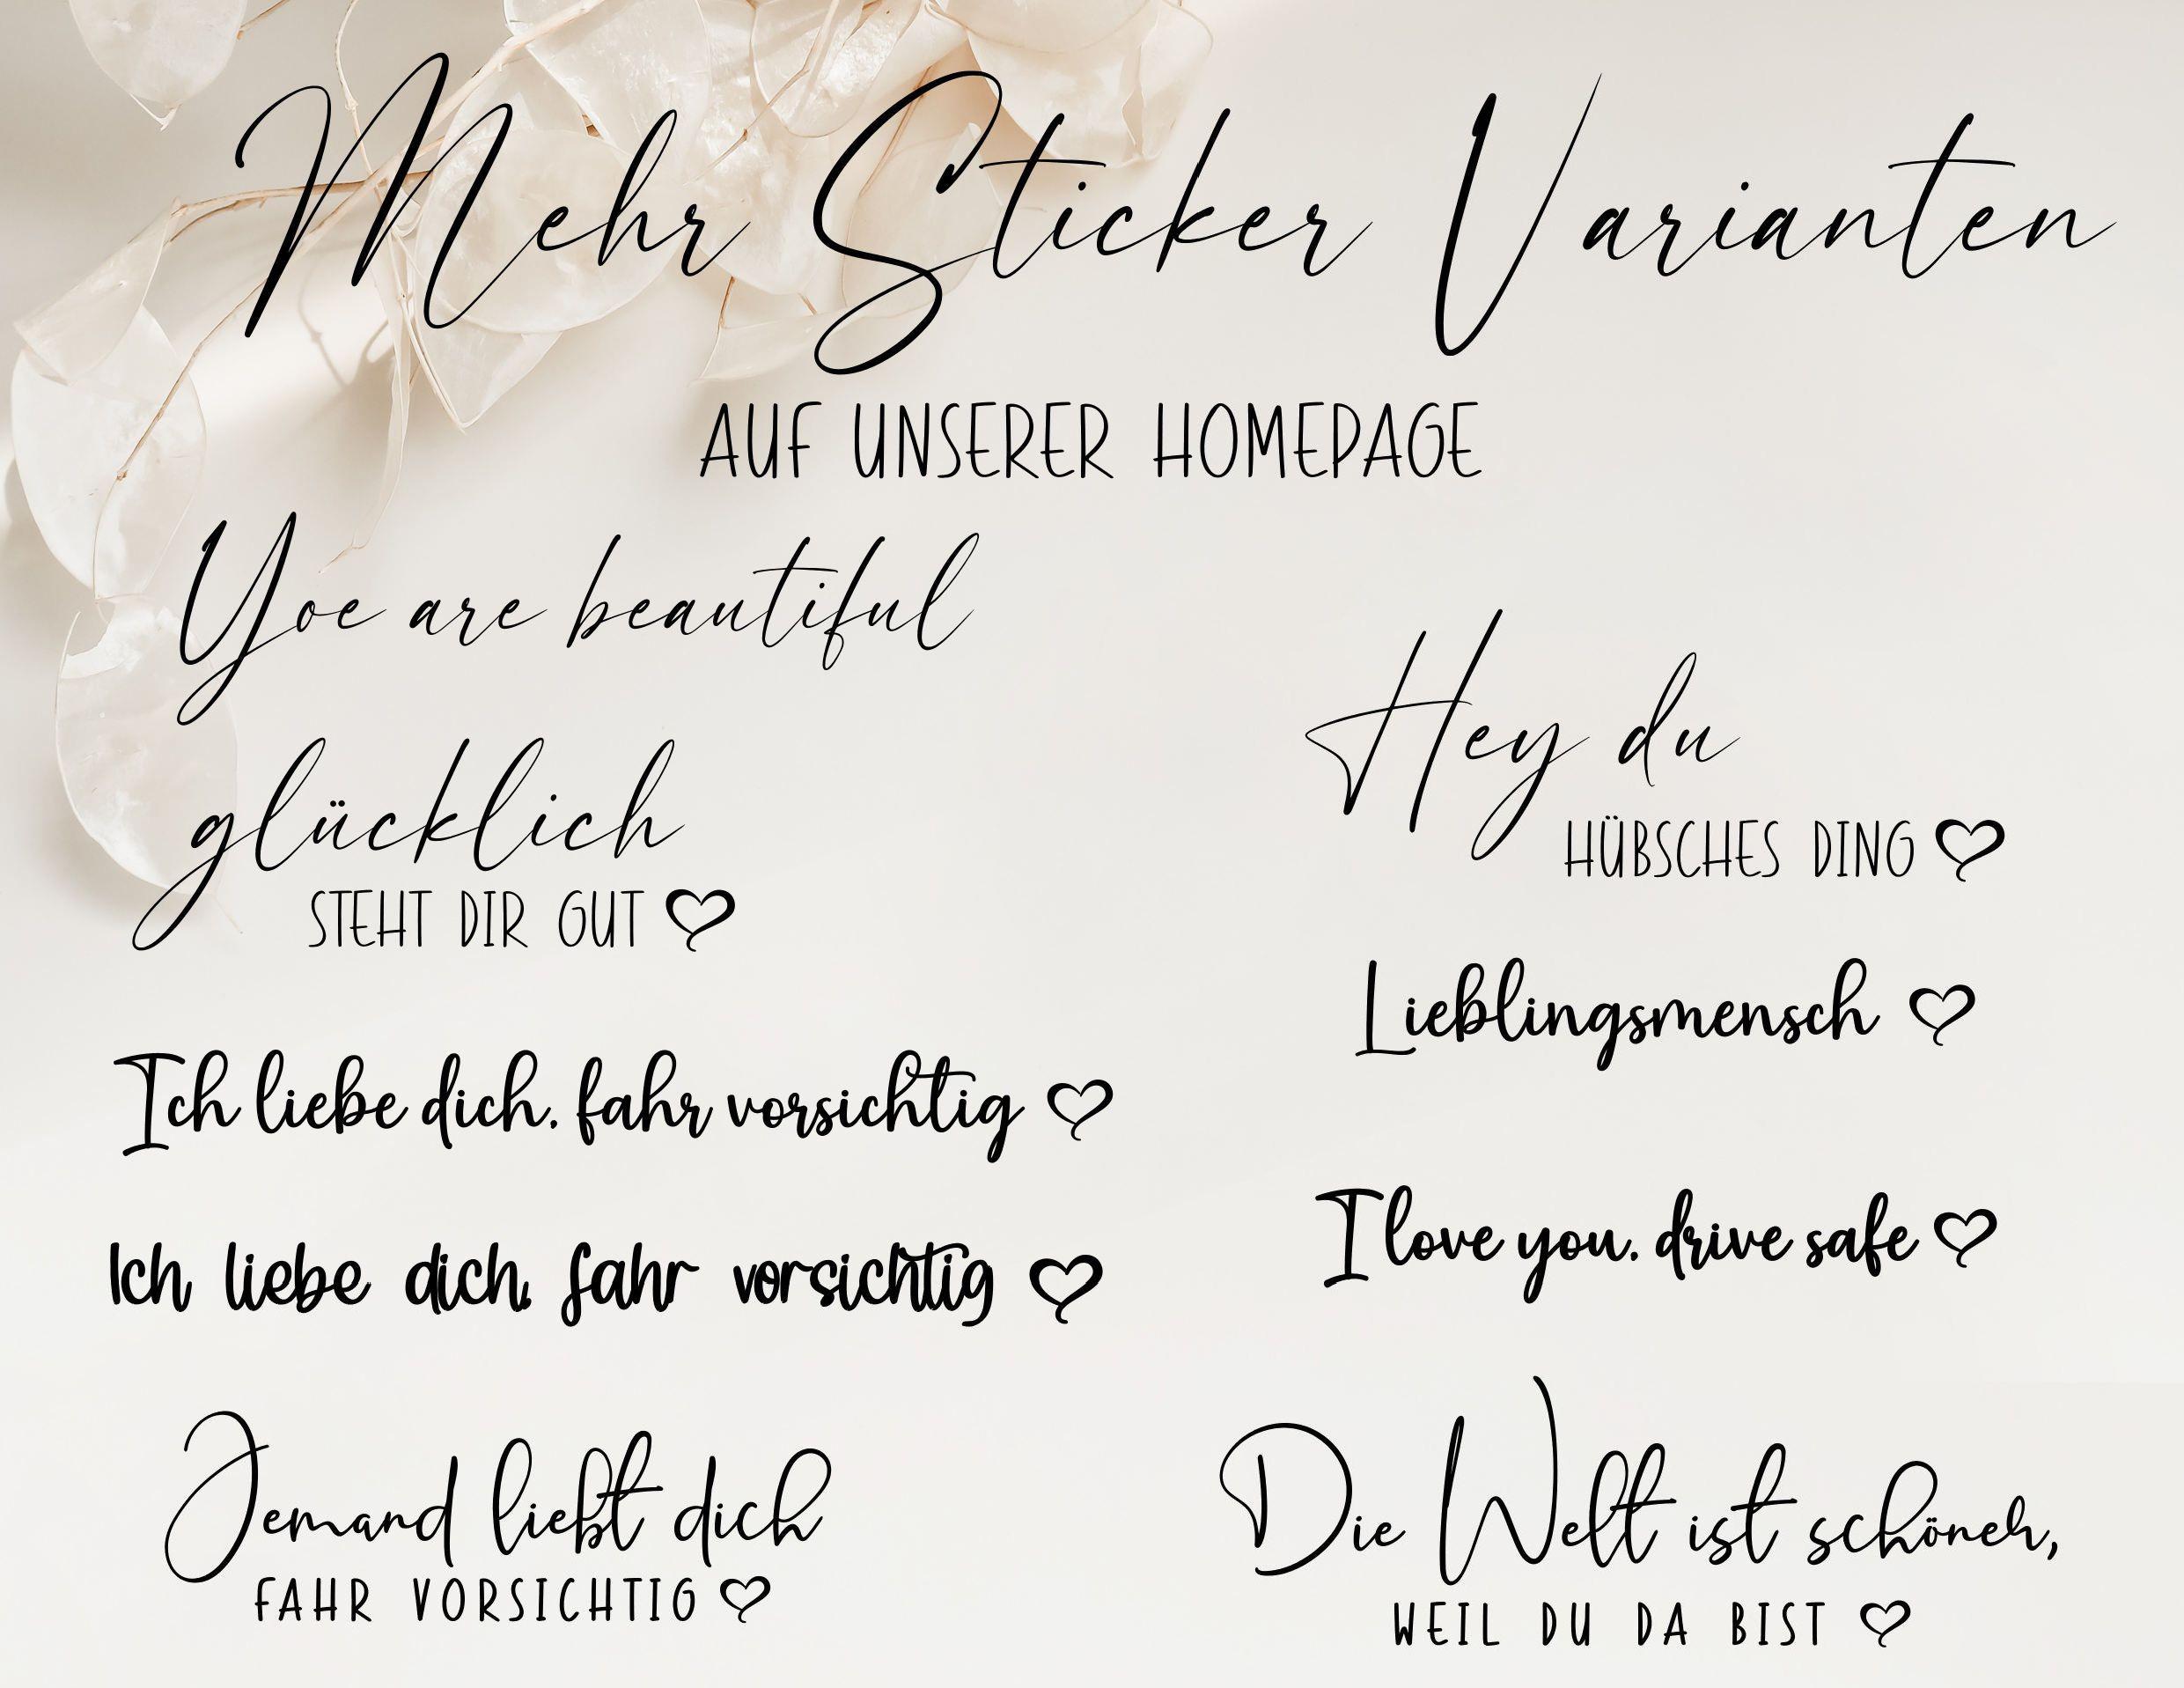 Mehr Sticker Varianten
AUF UNSERER HOMEPAGE
Yoe are beautiful
glücklich
STEHT DIR GUT
Hey du
HÜBSCHES DING
Lieblingsmensch
Ich liebe dich, fahr vorsichtig
I love you, drive safe
Ich liebe dich, fahr vorsichtig
Jemand liebt dich
FAHR VORSICHTIG
Die Welt ist schöner,
WEIL DU DA BIST